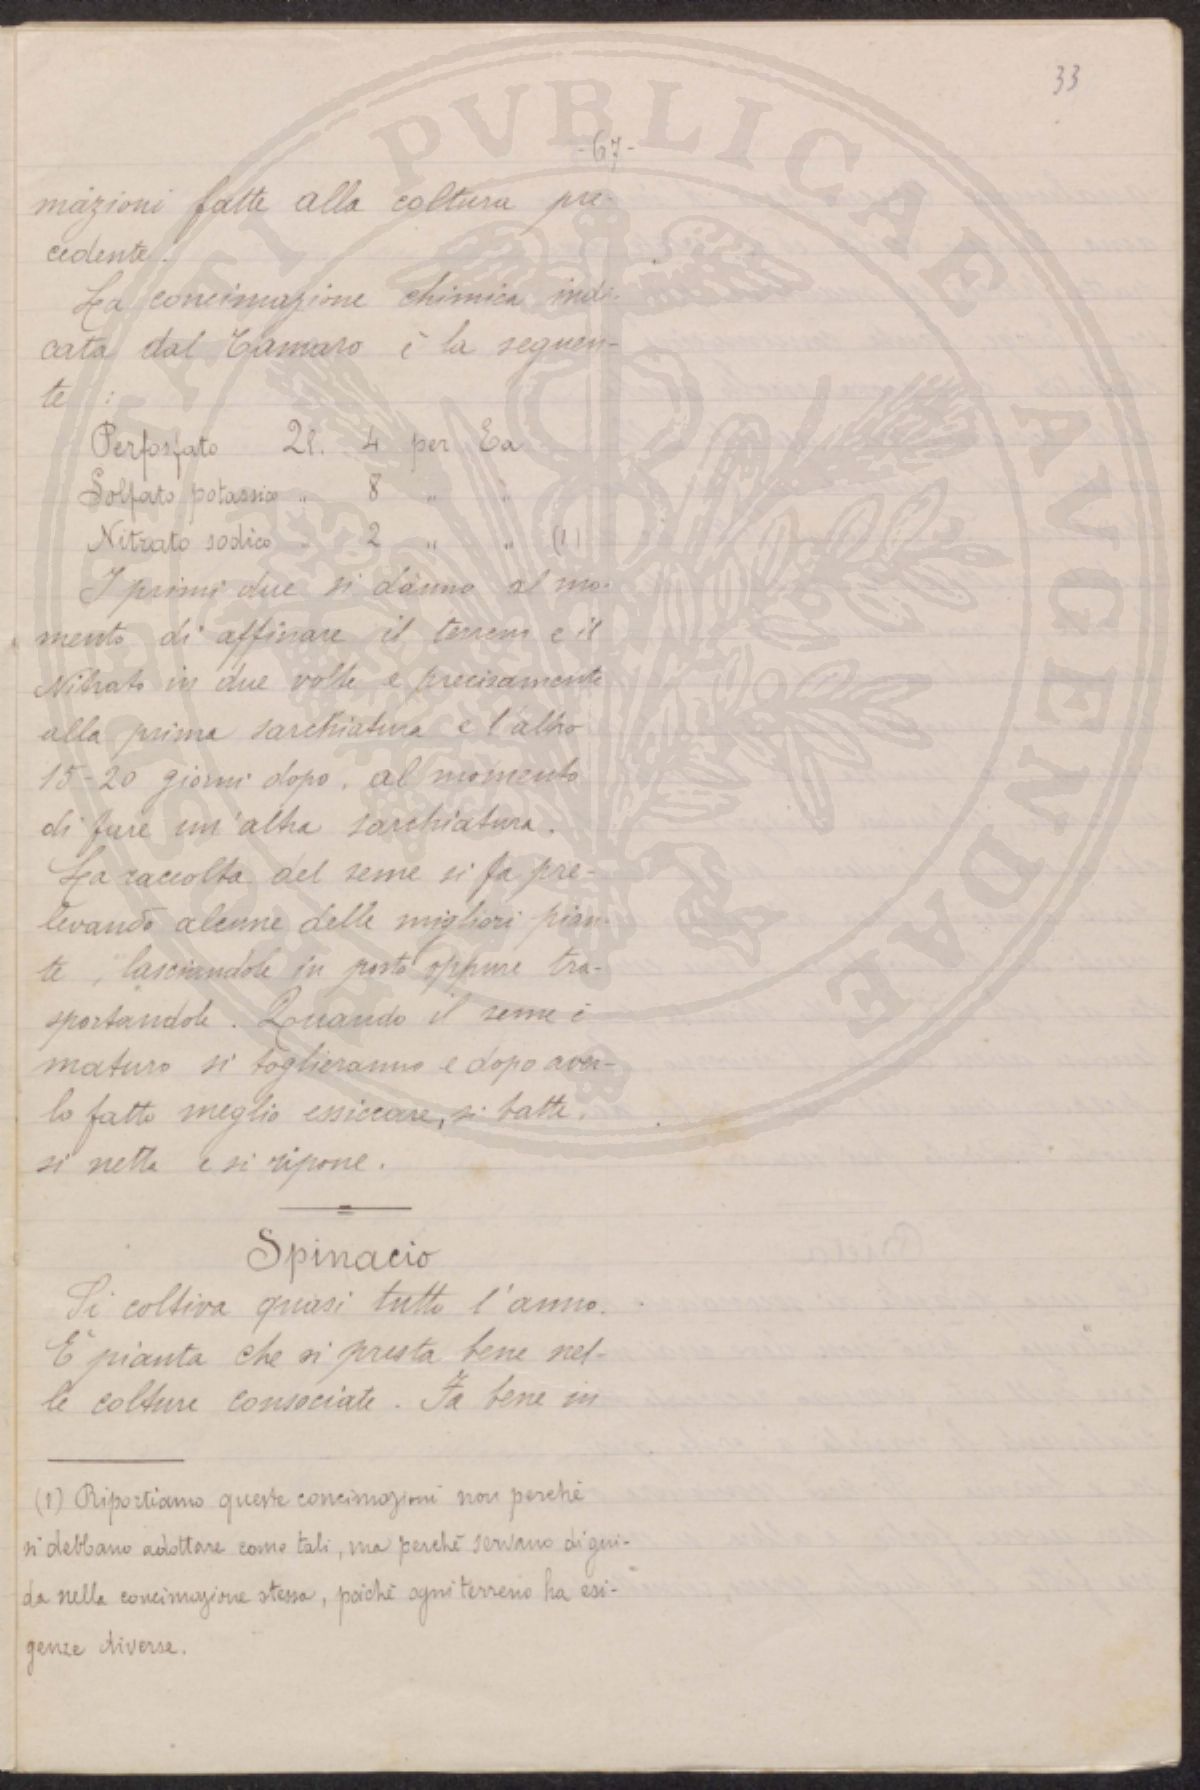 33
-67-
mazioni fatte alla coltura pre-
cedente.
La concimazione chimica indi-
cata dal Tamaro è la seguen-
te :
Perfosfato Ql. 4 per Ea
Solfato potassico „ 8 „ „
Nitrato sodico „ 2 „ „ (1)
I primi due si dànno al mo-
mento di affinare il terreno e il
Nitrato in due volte e precisamente
alla prima sarchiatura e l'altro
15-20 giorni dopo, al momento
di fare un'altra sarchiatura.
La raccolta del seme si fa pre-
levando alcune delle migliori pian-
te, lasciandole in posto oppure tra-
sportandole. Quando il seme è
maturo si toglieranno e dopo aver-
lo fatto meglio essiccare, si batte,
si netta e si ripone.
Spinacio
Si coltiva quasi tutto l'anno.
È pianta che si presta bene nel-
le colture consociate. Fa bene in
(1) Riportiamo queste concimazioni non perchè
si debbano adottare come tali, ma perchè servano di gui-
da nella concimazione stessa, poichè ogni terreno ha esi-
genze diverse.
PUBLICAE AUGENDAE